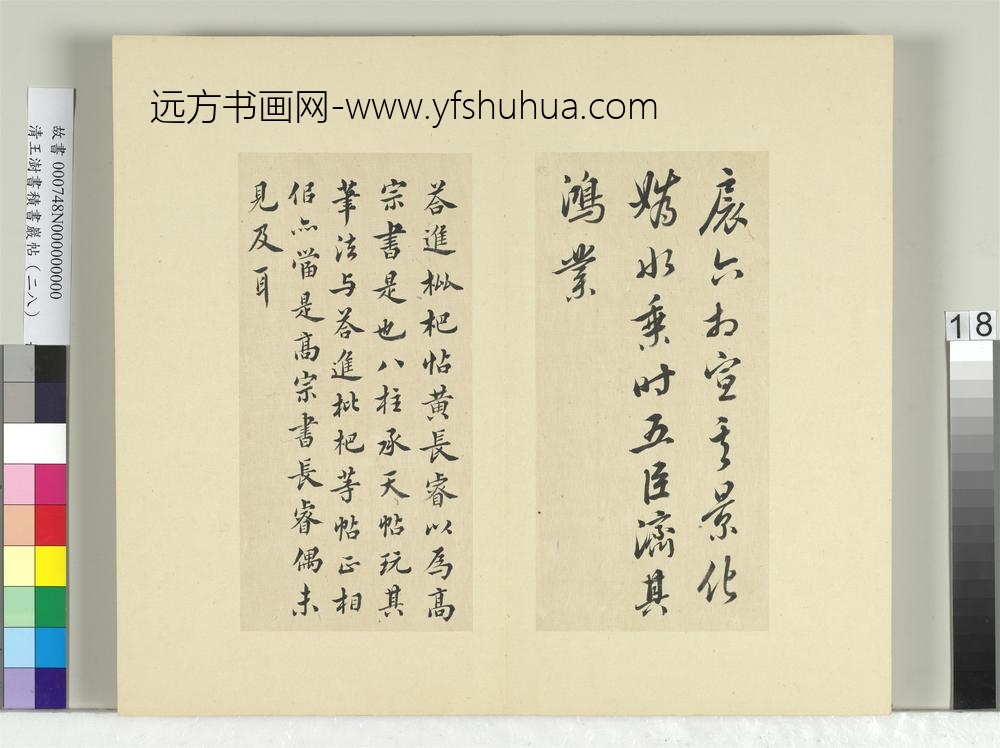 远方书画网-www.yfshuhua.com
宸六相宣其景化
媯水乘时五臣濟其
鴻業
荅進枇杷帖黃長睿以為高
宗書是也八柱承天帖玩其
筆法与荅進枇杷等帖正相
佀亦當是高宗書長睿偶未
見及耳
故書 000748N000000000
清王澍書積書巖帖(二八)
18